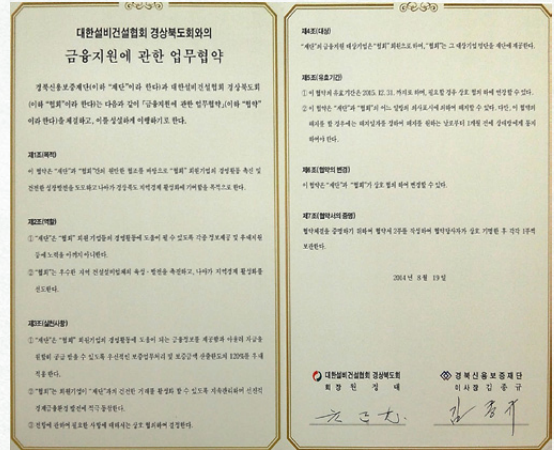 대한설비건설협회 경상북도회와의
금융지원에 관한 업무협약
경북신용보증재단(이하 "재단"이라 한다)과 대한설비건설협회 경상북도회
(이하 "협회"이라 한다)는 다음과 같이 「금융지원에 관한 업무협약」(이하 "협약"
이라 한다)을 체결하고, 이를 성실하게 이행하기로 한다.
제1조(목적)
이 협약은 "재단"과 "협회"간의 원만한 협조를 바탕으로 "협회" 회원기업의 경영활동 촉진 및
건전한 성장발전을 도모하고 나아가 경상북도 지역경제 활성화에 기여함을 목적으로 한다.
제2조(역할)
① "재단"은 "협회" 회원 기업들의 경영활동에 도움이 될 수 있도록 각종 정보제공 및 우대지원
등에 노력을 아끼지 아니한다.
② "협회"는 우수한 지역 건설설비업체의 육성·발전을 촉진하고, 나아가 지역경제 활성화를
선도한다.
제3조(실천사항)
① "재단"은 "협회" 회원기업의 경영활동에 도움이 되는 금융정보를 제공함과 아울러 자금을
원활히 공급 받을 수 있도록 우선적인 보증업무처리 및 보증금액 산출한도의 120%를 우대
적용 한다.
② "협회"는 회원기업이 "재단"과의 건전한 거래를 활성화 할 수 있도록 지속관리하여 선진적
경제금융환경 발전에 적극 동참한다.
③ 전항에 관하여 필요한 사항에 대해서는 상호 협의하여 결정한다.
제4조(대상)
"재단"의 금융지원 대상기업은 "협회" 회원으로 하며, "협회"는 그 대상기업 명단을 재단에 제공한다.
제5조(유효기간)
① 이 협약의 유효기간은 2015. 12. 31. 까지로 하며, 필요할 경우 상호 협의 하에 연장할 수 있다.
② 이 협약은 "재단"과 "협회"의 어느 일방의 의사표시에 의하여 해지할 수 있다. 다만, 이 협약의
해지를 할 경우에는 해지일자를 정하여 해지를 원하는 날로부터 1개월 전에 상대방에게 통지
하여야 한다.
제6조(협약의 변경)
이 협약은 "재단"과 "협회"가 상호 협의 하에 변경할 수 있다.
제7조(협약서의 증명)
협약체결을 증명하기 위하여 협약서 2부를 작성하여 협약당사자가 상호 기명날인 후 각각 1부씩
보관한다.
2014 년 8 월 19 일
대한설비건설협회 경상북도회
회 장 원 정 대
경북신용보증재단
이 사 장 김 종 규